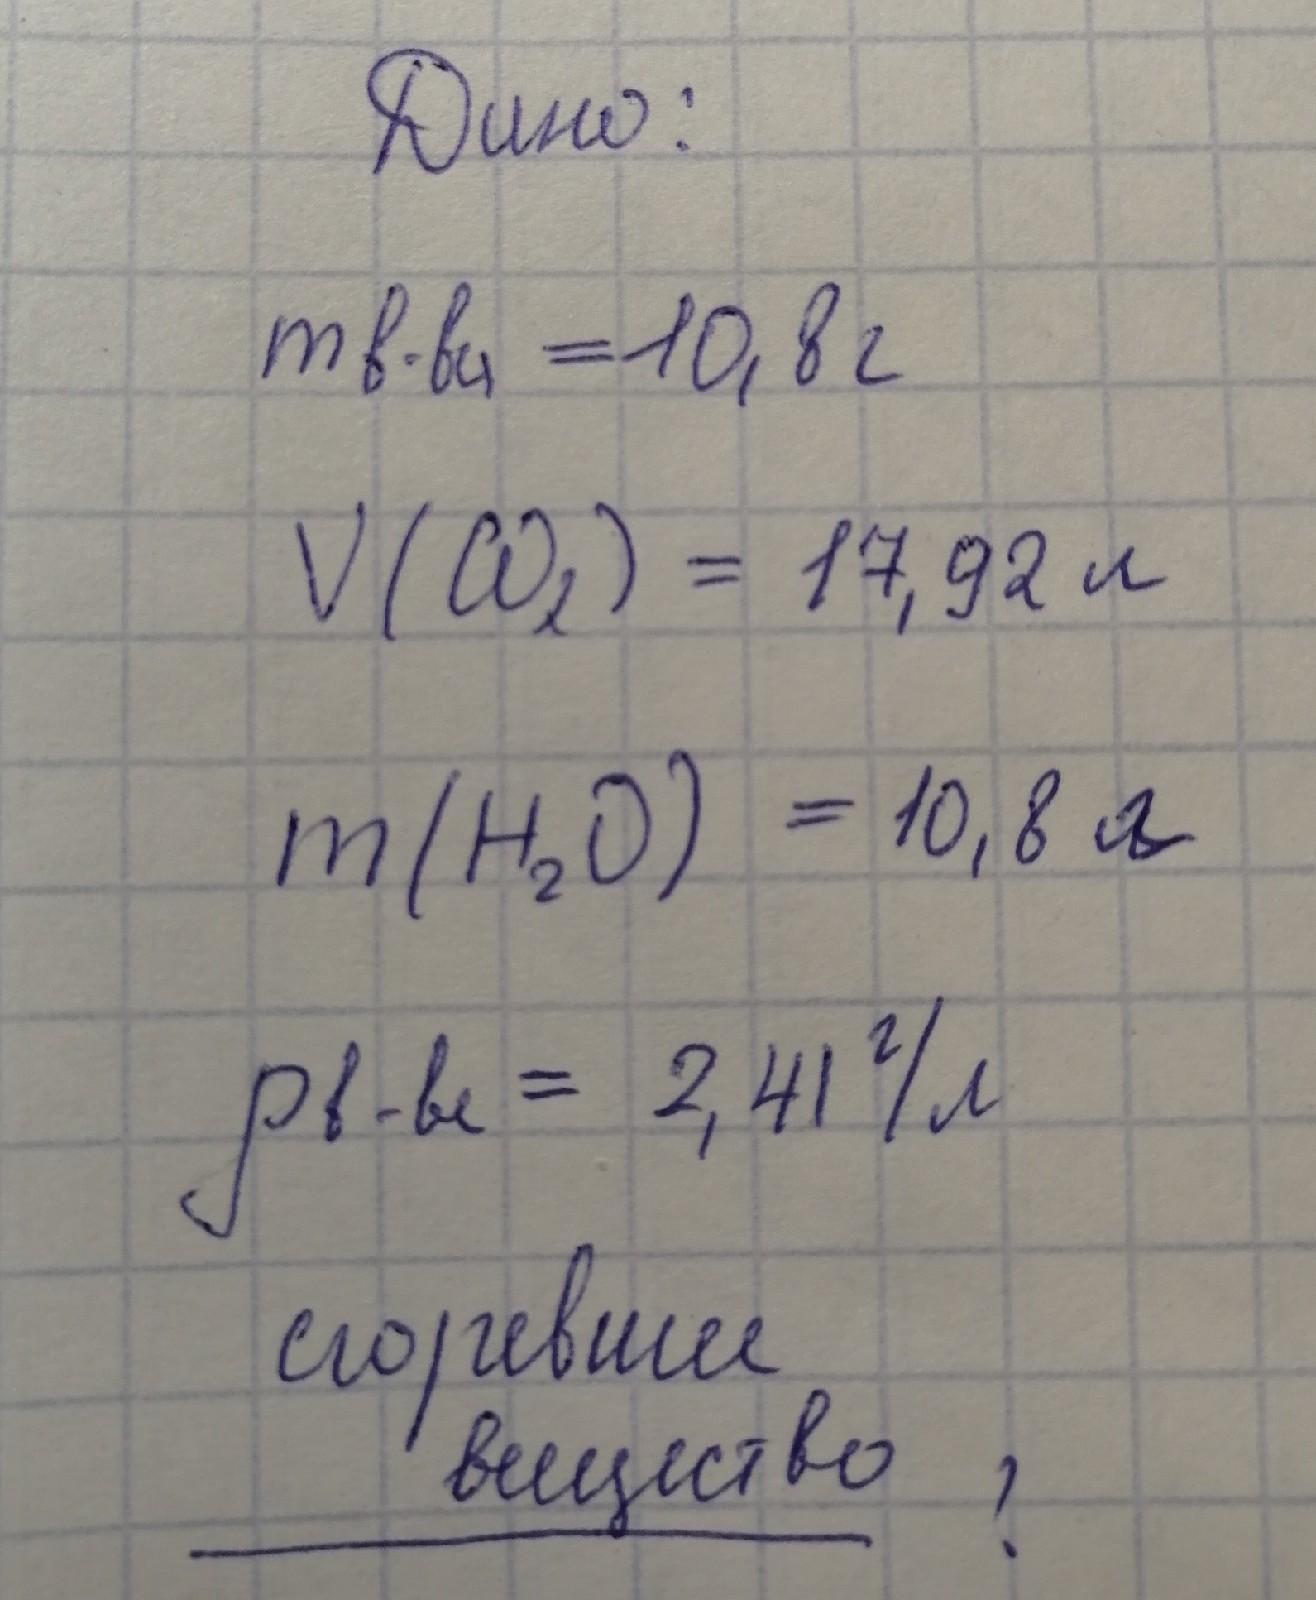 Дано:
m в-ва = 10,8 г
V(CO₂) = 17,92 л
m(H₂O) = 10,8 г
ρ в-ве = 2,41 г/л
сгоревшее
вещество ?